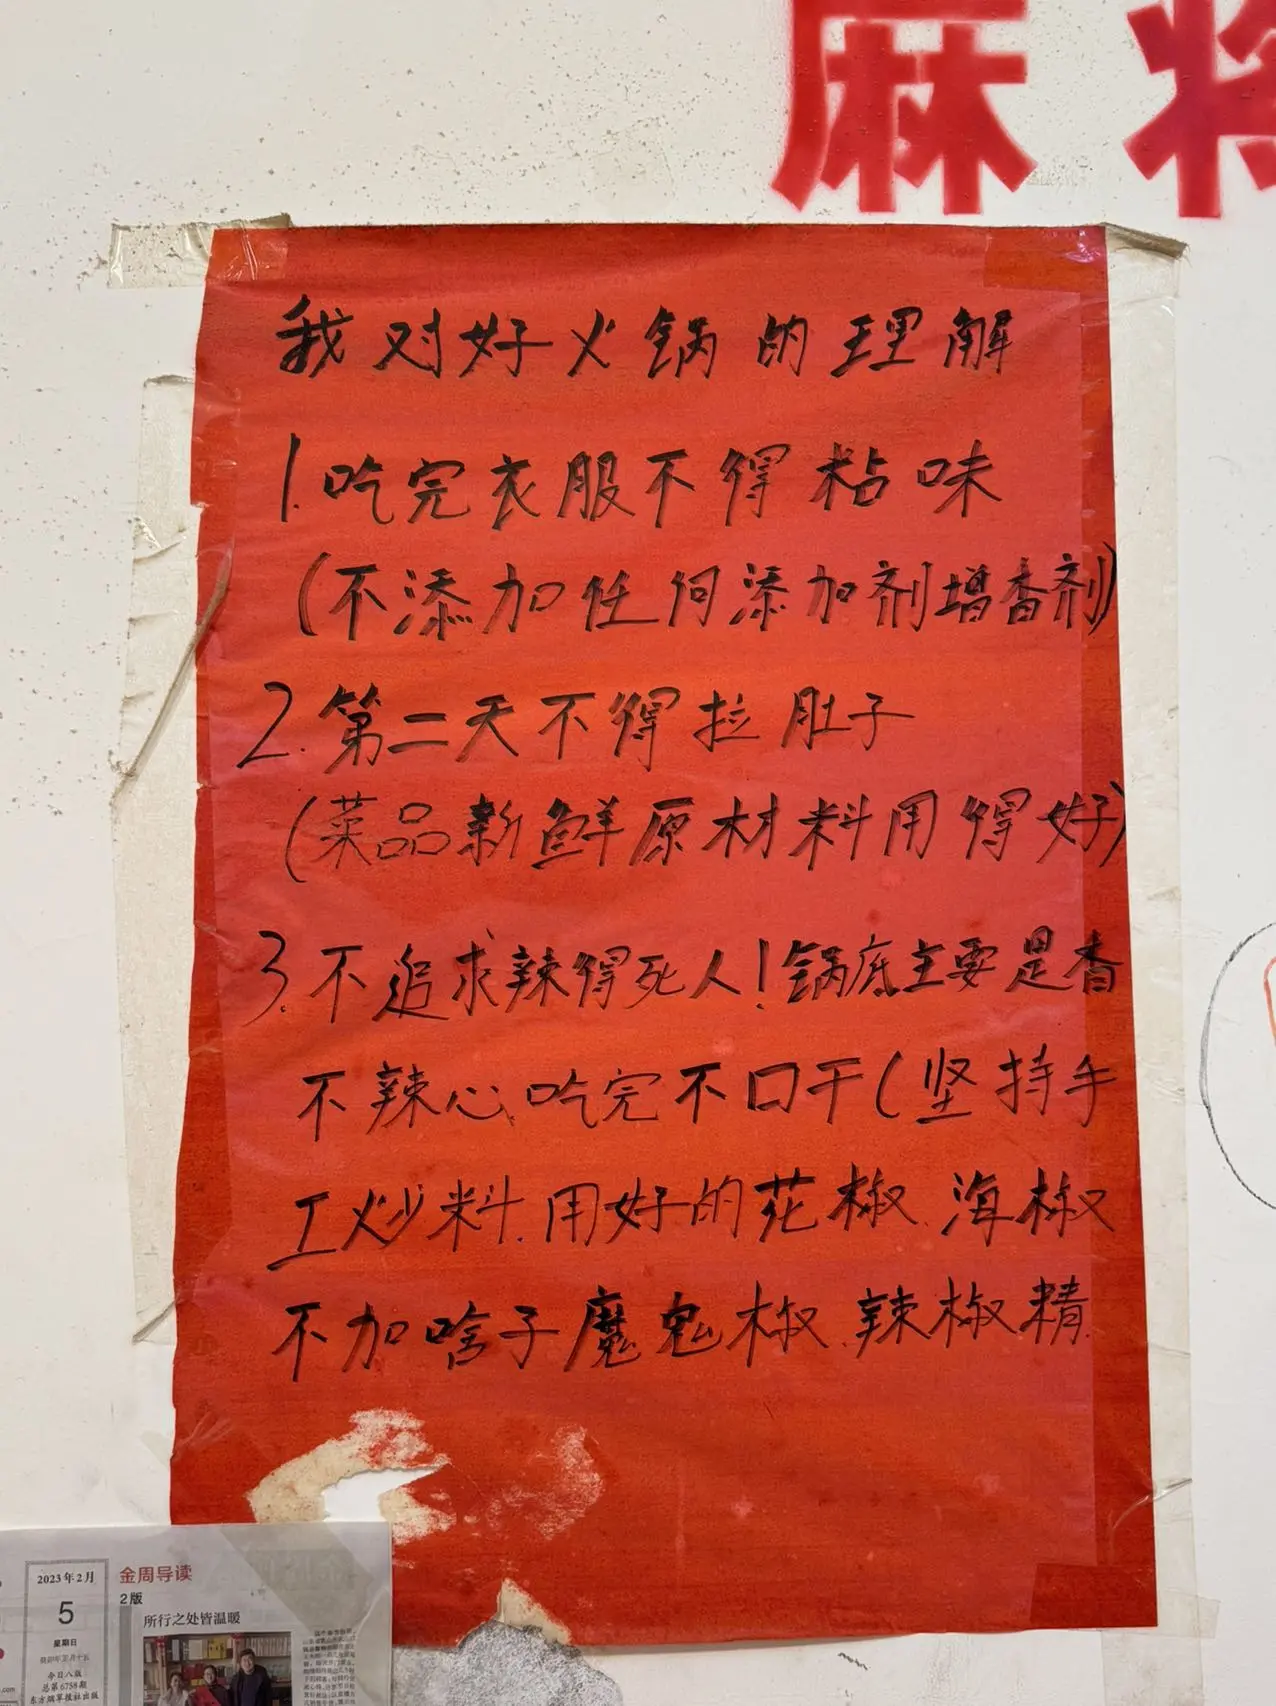 麻将
我对好火锅的理解
1.吃完衣服不得粘味
(不添加任何添加剂增香剂)
2.第二天不得拉肚子
(菜品新鲜原材料用得好)
3.不追求辣得死人!锅底主要是香
不辣心、吃完不口干(坚持手
工炒料.用好的花椒、海椒
不加啥子魔鬼椒.辣椒精.
2023年2月
5
星期日
癸卯年正月十五
今日八版
总第6758期
东方烟草报社出版
金周导读
2版
所行之处皆温暖